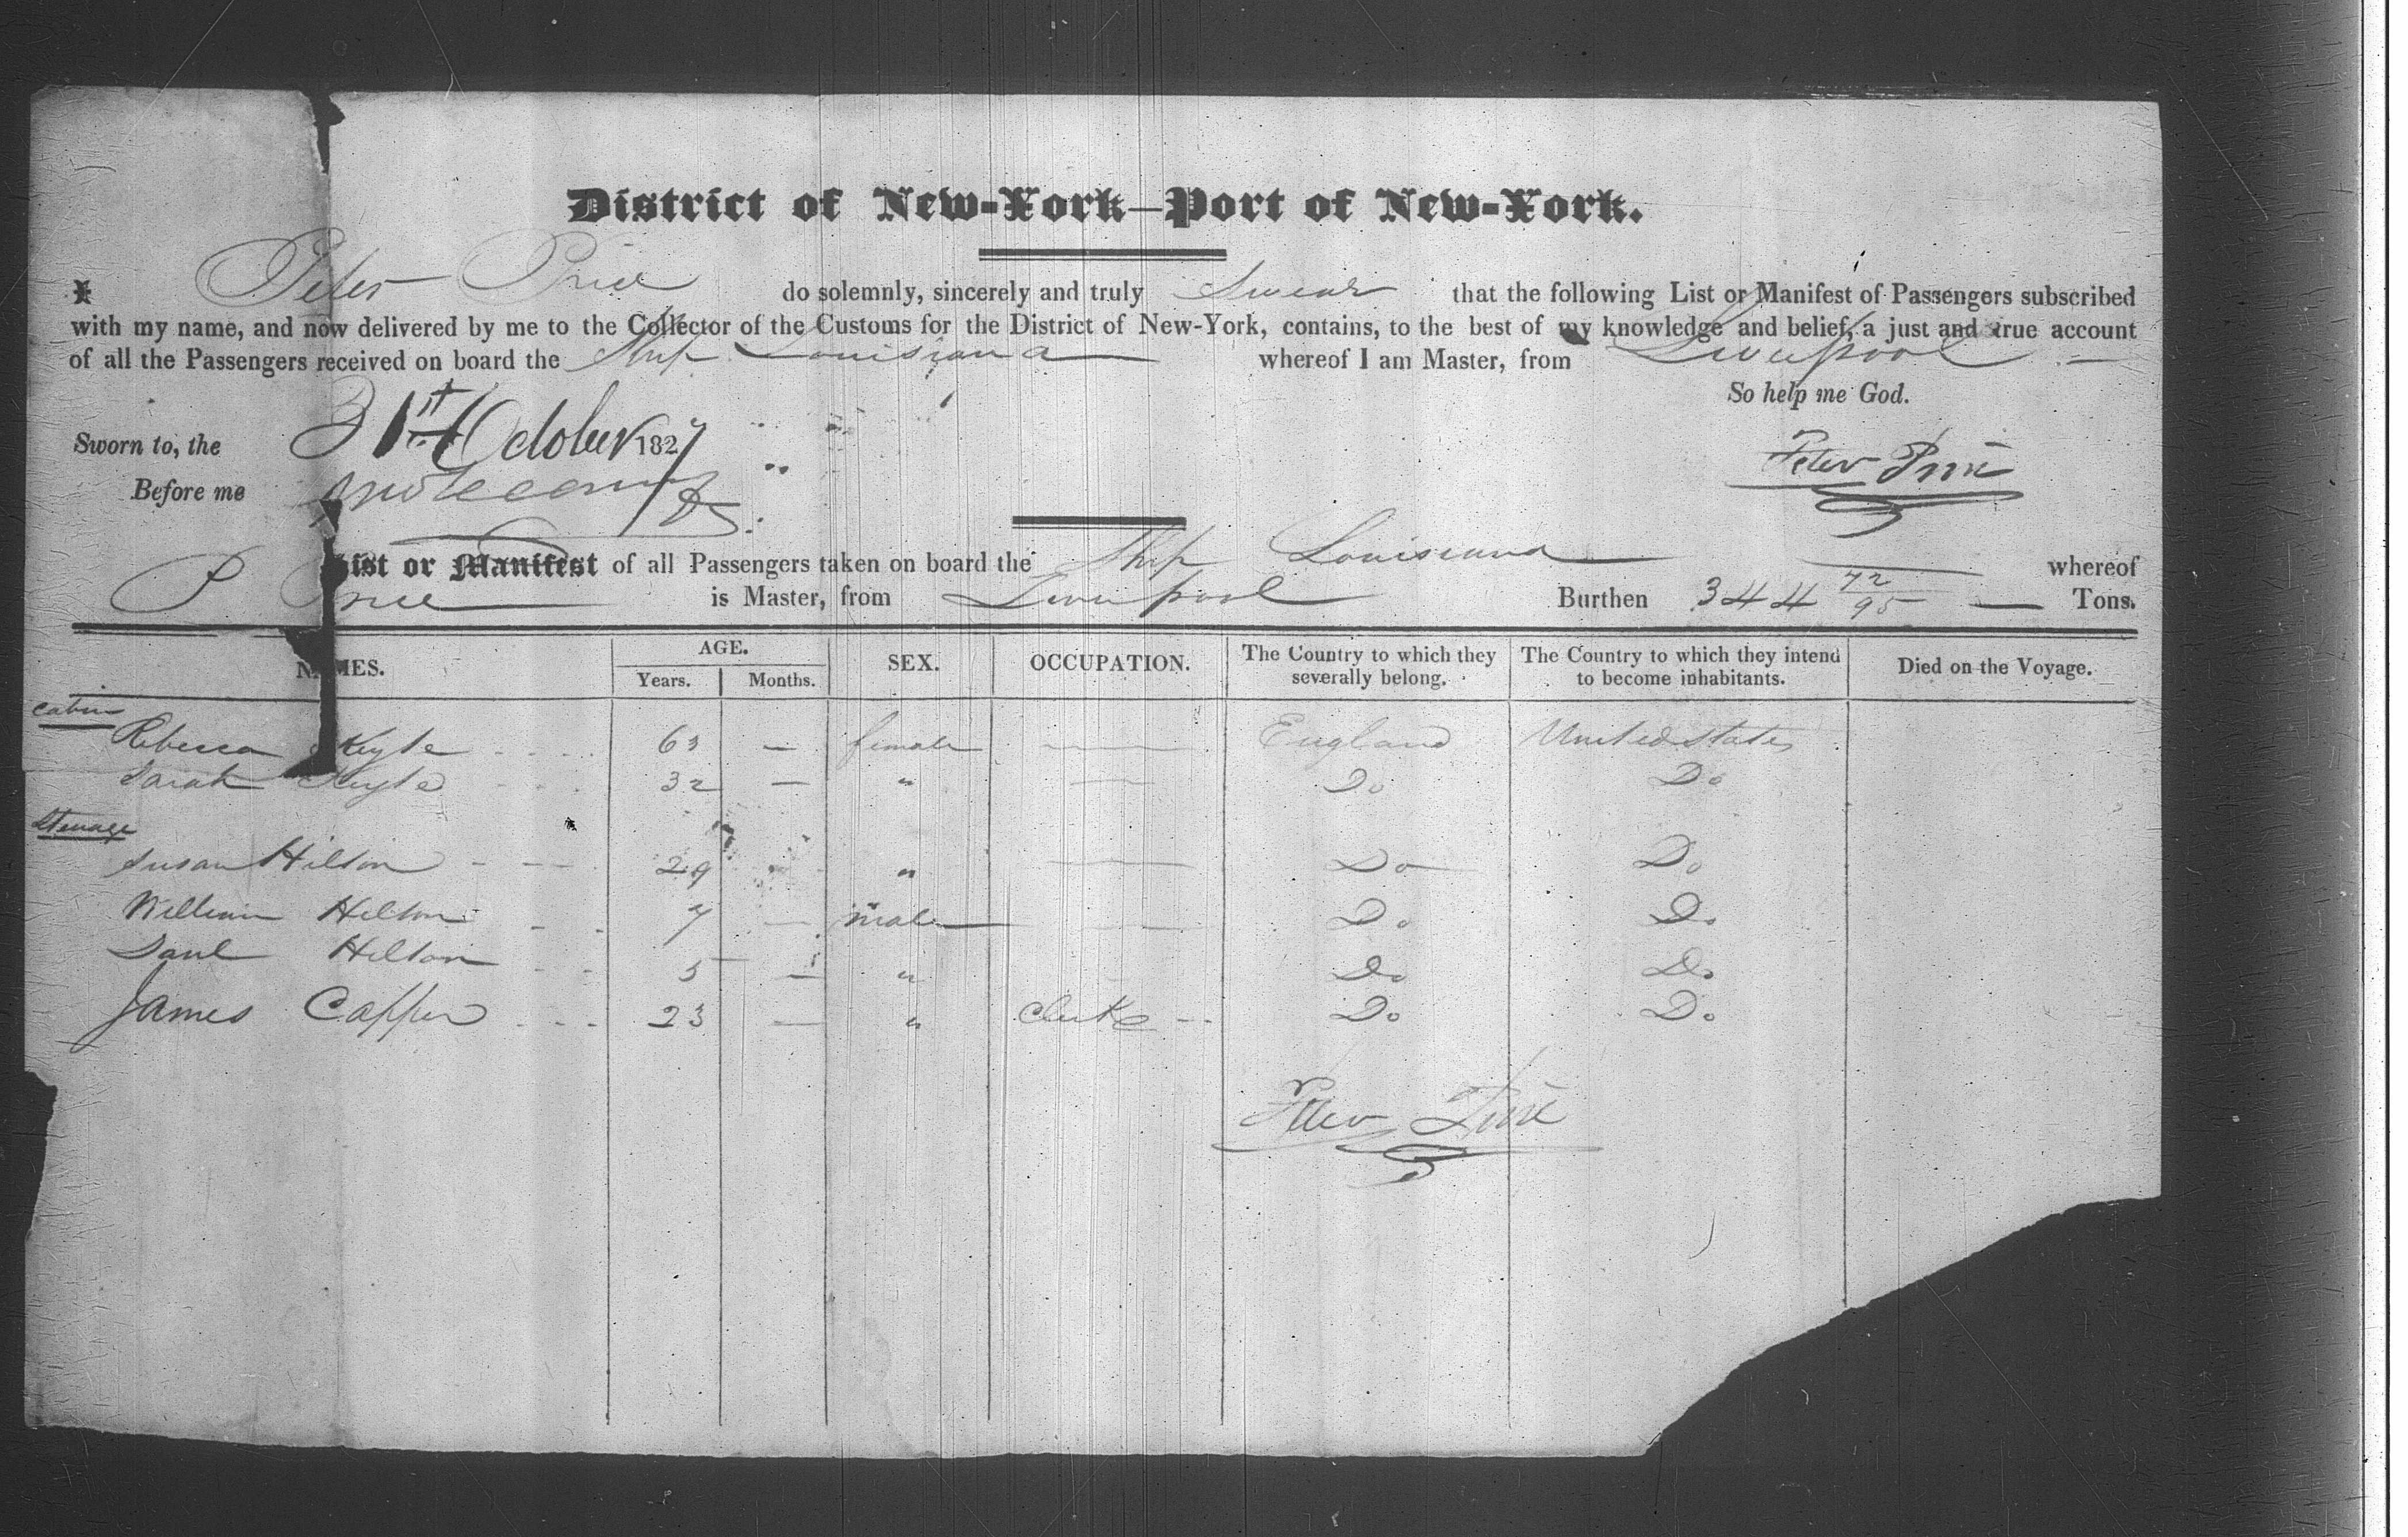 District of New-York—Port of New-York.
I Peter Price do solemnly, sincerely and truly Swear that the following List or Manifest of Passengers subscribed
with my name, and now delivered by me to the Collector of the Customs for the District of New-York, contains, to the best of my knowledge and belief, a just and true account
of all the Passengers received on board the Ship Louisiana whereof I am Master, from Liverpool
So help me God.
Sworn to, the 31st October 1827
Peter Price
Before me
List or Manifest of all Passengers taken on board the Ship Louisiana whereof
P Price is Master, from Liverpool Burthen 344 72/95 Tons.
NAMES. AGE. Years. Months. SEX. OCCUPATION. The Country to which they severally belong. The Country to which they intend to become inhabitants. Died on the Voyage.
Cabin
Rebecca 63 — female — England United States
Sarah 32 — " — Do Do
Steerage
Susan Hilton 29 " — Do Do
William Hilton 7 — male — Do Do
Saul Hilton 5 — " Do Do
James Capper 23 — " Clerke Do Do
Peter Price